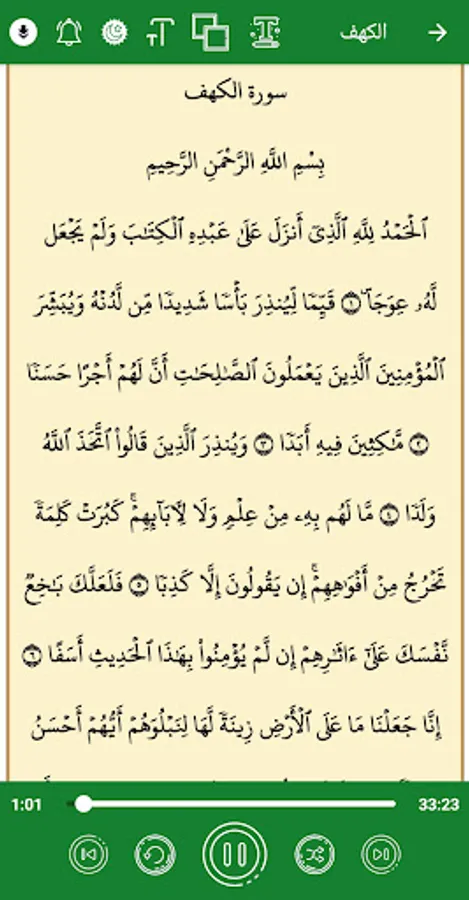 الكهف
سورة الكهف
بِسْمِ اللَّهِ الرَّحْمَٰنِ الرَّحِيمِ
ٱلْحَمْدُ لِلَّهِ ٱلَّذِىٓ أَنزَلَ عَلَىٰ عَبْدِهِ ٱلْكِتَٰبَ وَلَمْ يَجْعَل
لَّهُۥ عِوَجَاۜ ۝١ قَيِّمًا لِّيُنذِرَ بَأْسًا شَدِيدًا مِّن لَّدُنْهُ وَيُبَشِّرَ
ٱلْمُؤْمِنِينَ ٱلَّذِينَ يَعْمَلُونَ ٱلصَّٰلِحَٰتِ أَنَّ لَهُمْ أَجْرًا حَسَنًا
۝٢ مَّٰكِثِينَ فِيهِ أَبَدًا ۝٣ وَيُنذِرَ ٱلَّذِينَ قَالُوا۟ ٱتَّخَذَ ٱللَّهُ
وَلَدًا ۝٤ مَّا لَهُم بِهِۦ مِنْ عِلْمٍ وَلَا لِءَابَآئِهِمْۚ كَبُرَتْ كَلِمَةً
تَخْرُجُ مِنْ أَفْوَٰهِهِمْۚ إِن يَقُولُونَ إِلَّا كَذِبًا ۝٥ فَلَعَلَّكَ بَٰخِعٌ
نَّفْسَكَ عَلَىٰٓ ءَاثَٰرِهِمْ إِن لَّمْ يُؤْمِنُوا۟ بِهَٰذَا ٱلْحَدِيثِ أَسَفًا ۝٦
إِنَّا جَعَلْنَا مَا عَلَى ٱلْأَرْضِ زِينَةً لَّهَا لِنَبْلُوَهُمْ أَيُّهُمْ أَحْسَنُ
1:01
33:23